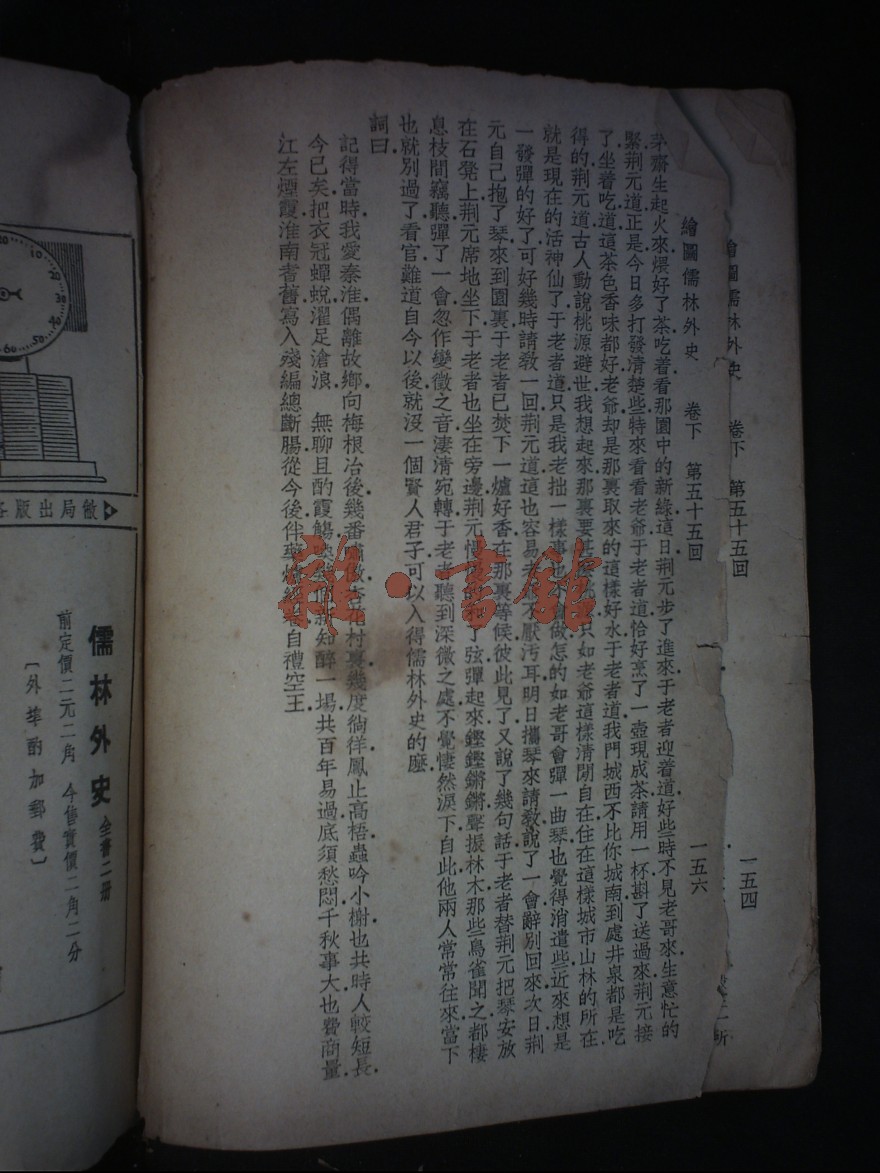 繪圖儒林外史 卷下 第五十五回 一五四
繪圖儒林外史 卷下 第五十五回 一五六
茅齋生起火來煨好了茶吃着看那園中的新綠這日荆元步了進來于老者迎着道好些時不見老哥來生意忙的
緊荆元道正是今日多打發清楚些特來看看老爺于老者道恰好烹了一壺現成茶請用一杯斟了送過來荆元接
了坐着吃道這茶色香味都好老爺却是那裏取來的這樣好水于老者道我門城西不比你城南到處井泉都是吃
得的荆元道古人動說桃源避世我想起來那裏要 只如老爺這樣清閒自在住在這樣城市山林的所在
就是現在的活神仙了于老者道只是我老拙一樣事也 做怎的如老哥會彈一曲琴也覺得消遣些近來想是
一發彈的好了可好幾時請敎一回荆元道這也容易老 不厭汚耳明日攜琴來請敎說了一會辭別回來次日荆
元自己抱了琴來到園裏于老者已焚下一爐好香在那裏等候彼此見了又說了幾句話于老者替荆元把琴安放
在石凳上荆元席地坐下于老者也坐在旁邊荆元慢 和了弦彈起來鏗鏗鏘鏘聲振林木那些鳥雀聞之都棲
息枝間竊聽彈了一會忽作變徵之音淒清宛轉于老者聽到深微之處不覺悽然淚下自此他兩人常常往來當下
也就別過了看官難道自今以後就沒一個賢人君子可以入得儒林外史的麽
詞曰
記得當時我愛秦淮偶離故鄉向梅根冶後幾番 村裏幾度徜徉鳳止高梧蟲吟小榭也共時人較短長
今已矣把衣冠蟬蛻濯足滄浪 無聊且酌霞觴 新知醉一場共百年易過底須愁悶千秋事大也費商量
江左煙霞淮南耆舊寫入殘編總斷腸從今後伴 自禮空王
雜·書館
局出版
儒林外史 全書二册
前定價二元二角 今售實價二角二分
〔外埠酌加郵費〕